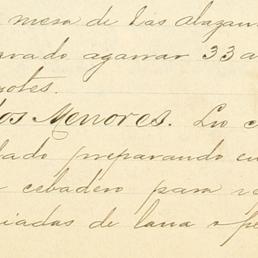 mesa de las alazan
avado agarrar 33 a
notes.
os Menores. Lo c
bado preparando cu
cebadero para re
iadas de lana o pe